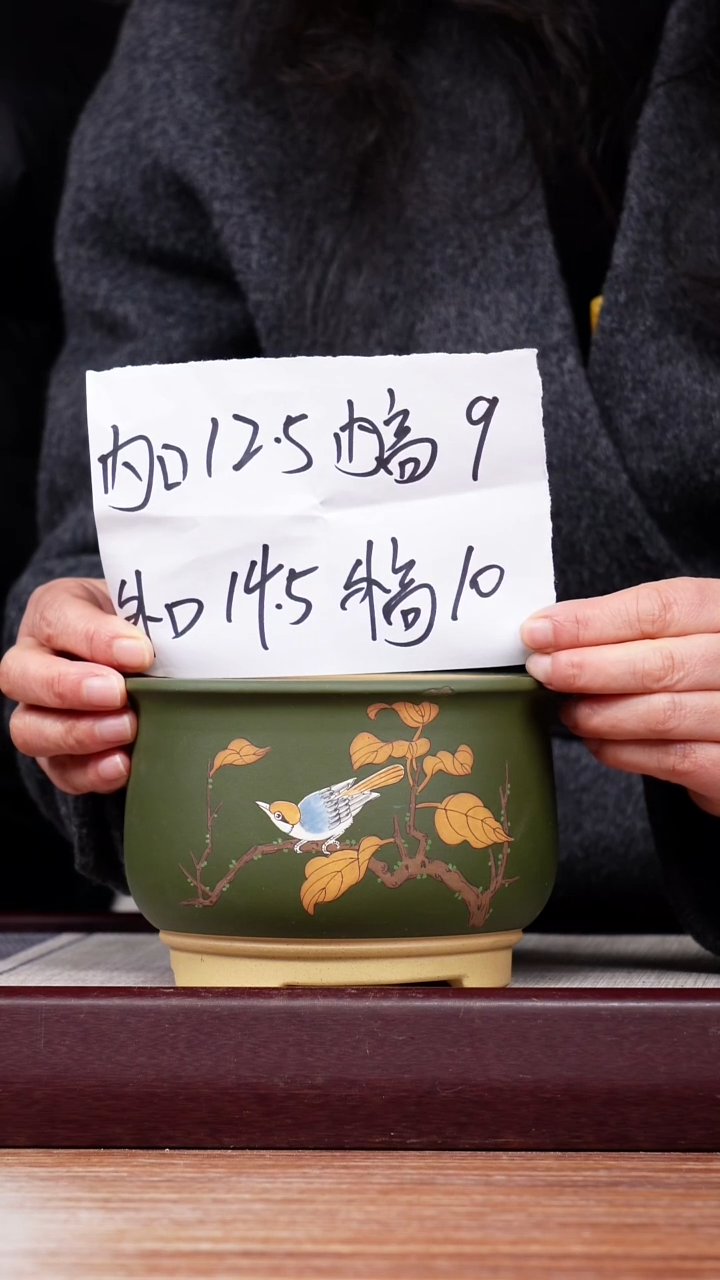 内口12.5 内高 9
外口14.5 外高10